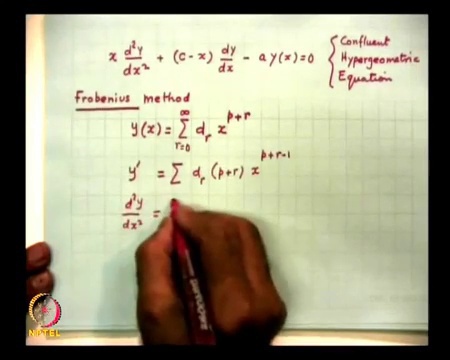 x d²y/dx² + (c - x) dy/dx - a y(x) = 0 { Confluent Hypergeometric Equation
Frobenius method
y(x) = ∑_{r=0}^{∞} d_r x^{p+r}
y' = ∑ d_r (p+r) x^{p+r-1}
d²y/dx² =
NPTEL